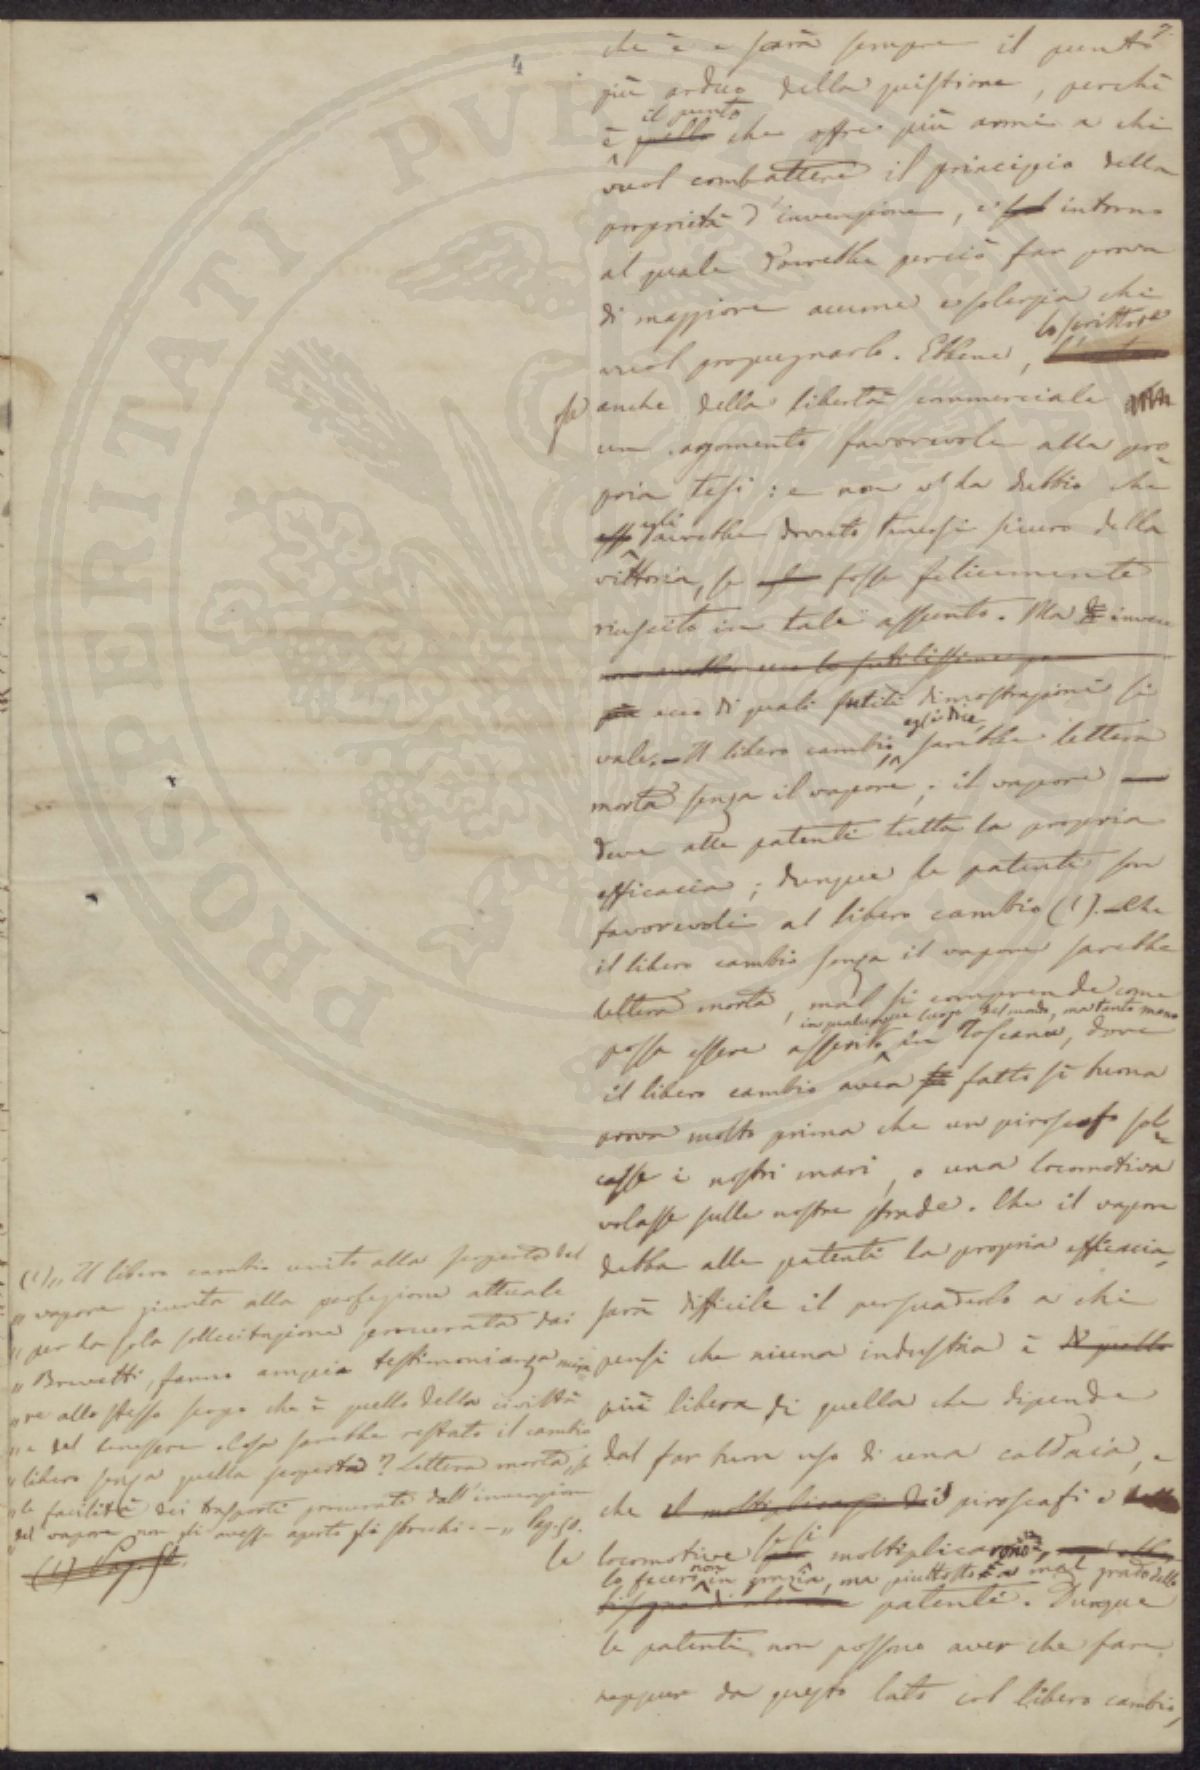 4
7.
che è e sarà sempre il punto
più arduo della quistione, perchè
il punto
è quello che offre più armi a chi
vuol combattere il principio della
proprietà d'invenzione, e intorno
al quale dovrebbe perciò far prova
di maggiore acume e solerzia chi
lo scrittore
vuol propugnarlo. Ebbene,
fa anche della libertà commerciale
un argomento favorevole alla pro-
pria tesi: e non v'ha dubbio che
egli
esso avrebbe dovuto tenersi sicuro della
vittoria, se fosse felicemente
riuscito in tale assunto. Ma invece
ecco di quali futili dimostrazioni si
egli dice,
vale. — Il libero cambio sarebbe lettera
morta senza il vapore; il vapore
deve alle patenti tutta la propria
efficacia; dunque le patenti son
favorevoli al libero cambio (1). — Che
il libero cambio senza il vapore sarebbe
lettera morta, mal si comprende come
in qualunque luogo del mondo, ma tanto meno
possa essere asserito in Toscana, dove
il libero cambio avea fatto sì buona
prova molto prima che un piroscafo sol-
casse i nostri mari, o una locomotiva
volasse sulle nostre strade. Che il vapore
debba alle patenti la propria efficacia,
sarà difficile il persuaderlo a chi
pensi che niuna industria è di quella
più libera di quella che dipende
dal far buon uso di una caldaia, e
che il moltiplicarsi dei piroscafi e
si
le locomotive moltiplicarono,
lo fecero non in grazia, ma piuttosto a mal grado delle
patenti. Dunque
le patenti non possono aver che fare
neppure da questo lato col libero cambio,
(1) „ Il libero cambio unito alla scoperta del
„ vapore giunta alla perfezione attuale
„ per la sola sollecitazione procurata dai
„ Brevetti, fanno ampia testimonianza
„ re allo stesso scopo che è quello della civiltà
„ e del benessere. Cosa sarebbe restato il cambio
„ libero senza quella scoperta? Lettera morta, se
„ le facilità dei trasporti procurate dall'invenzione
„ del vapore non gli avesse aperto gli sbocchi. — „ Pag. 50.
(1) Pag. 50.